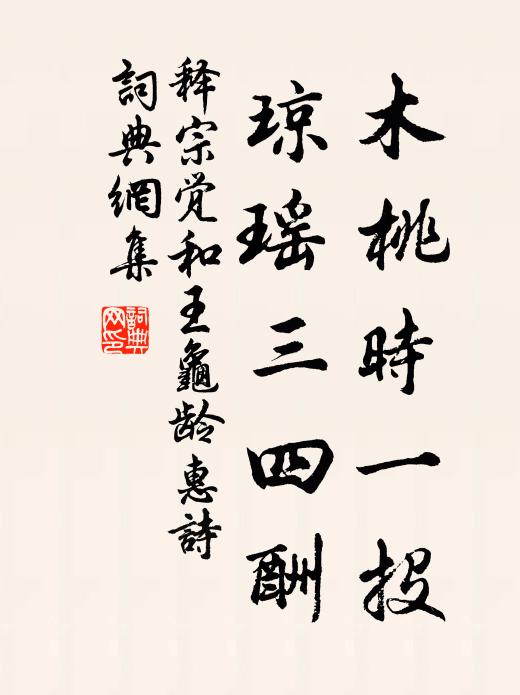 木桃時一投
琼瑶三四酬
释宗觉和王龜龄惠詩
詞典網集
詞典
网印